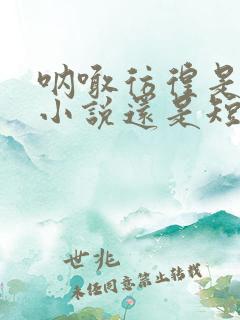 呐喊彷徨是
小說還是短
世兆
未经同意禁止转载